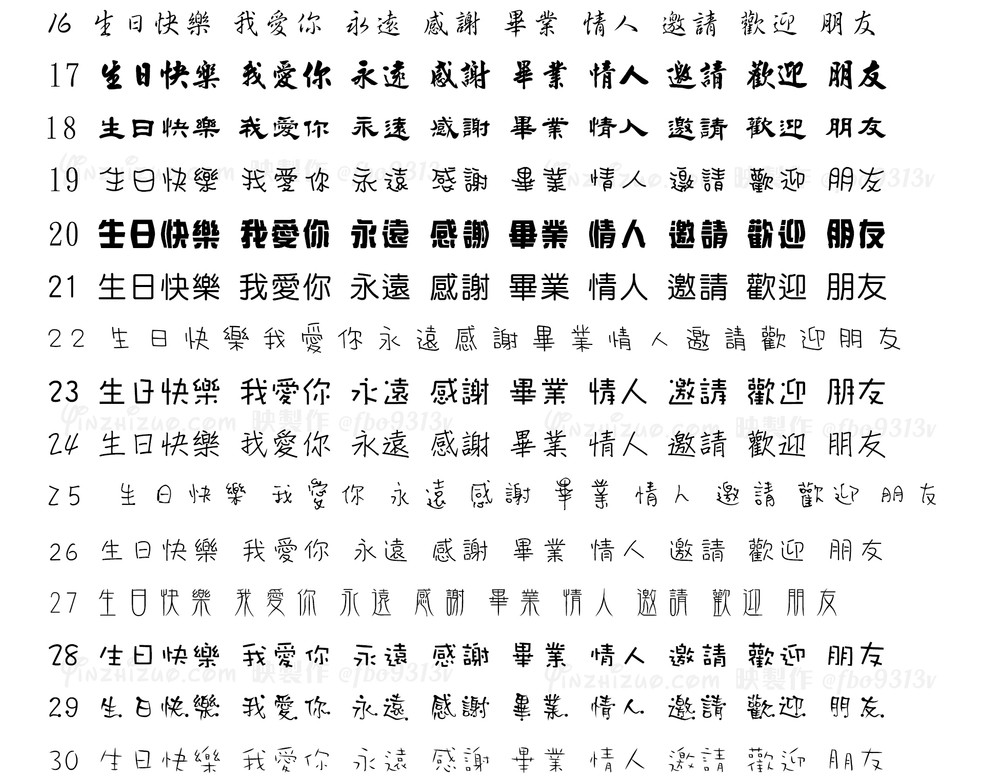 16 生日快樂 我愛你 永遠 感謝 畢業 情人 邀請 歡迎 朋友
17 生日快樂 我愛你 永遠 感謝 畢業 情人 邀請 歡迎 朋友
18 生日快樂 我愛你 永遠 感謝 畢業 情人 邀請 歡迎 朋友
Yinzhizuo.com 映製作 @fbo9313v Yinzhizuo.com 映製作 @fbo9313v
19 生日快樂 我愛你 永遠 感謝 畢業 情人 邀請 歡迎 朋友
20 生日快樂 我愛你 永遠 感謝 畢業 情人 邀請 歡迎 朋友
21 生日快樂 我愛你 永遠 感謝 畢業 情人 邀請 歡迎 朋友
22 生日快樂我愛你永遠感謝畢業情人邀請歡迎朋友
23 生日快樂 我愛你 永遠 感謝 畢業 情人 邀請 歡迎 朋友
Yinzhizuo.com 映製作 @fbo9313v Yinzhizuo.com 映製作 @fbo9313v
24 生日快樂 我愛你 永遠 感謝 畢業 情人 邀請 歡迎 朋友
25 生日快樂 我愛你 永遠 感謝 畢業 情人 邀請 歡迎 朋友
26 生日快樂 我愛你 永遠 感謝 畢業 情人 邀請 歡迎 朋友
27 生日快樂 我愛你 永遠 感謝 畢業 情人 邀請 歡迎 朋友
28 生日快樂 我愛你 永遠 感謝 畢業 情人 邀請 歡迎 朋友
Yinzhizuo.com 映製作 @fbo9313v Yinzhizuo.com 映製作 @fbo9313v
29 生日快樂 我愛你 永遠 感謝 畢業 情人 邀請 歡迎 朋友
30 生日快樂 我愛你 永遠 感謝 畢業 情人 邀請 歡迎 朋友